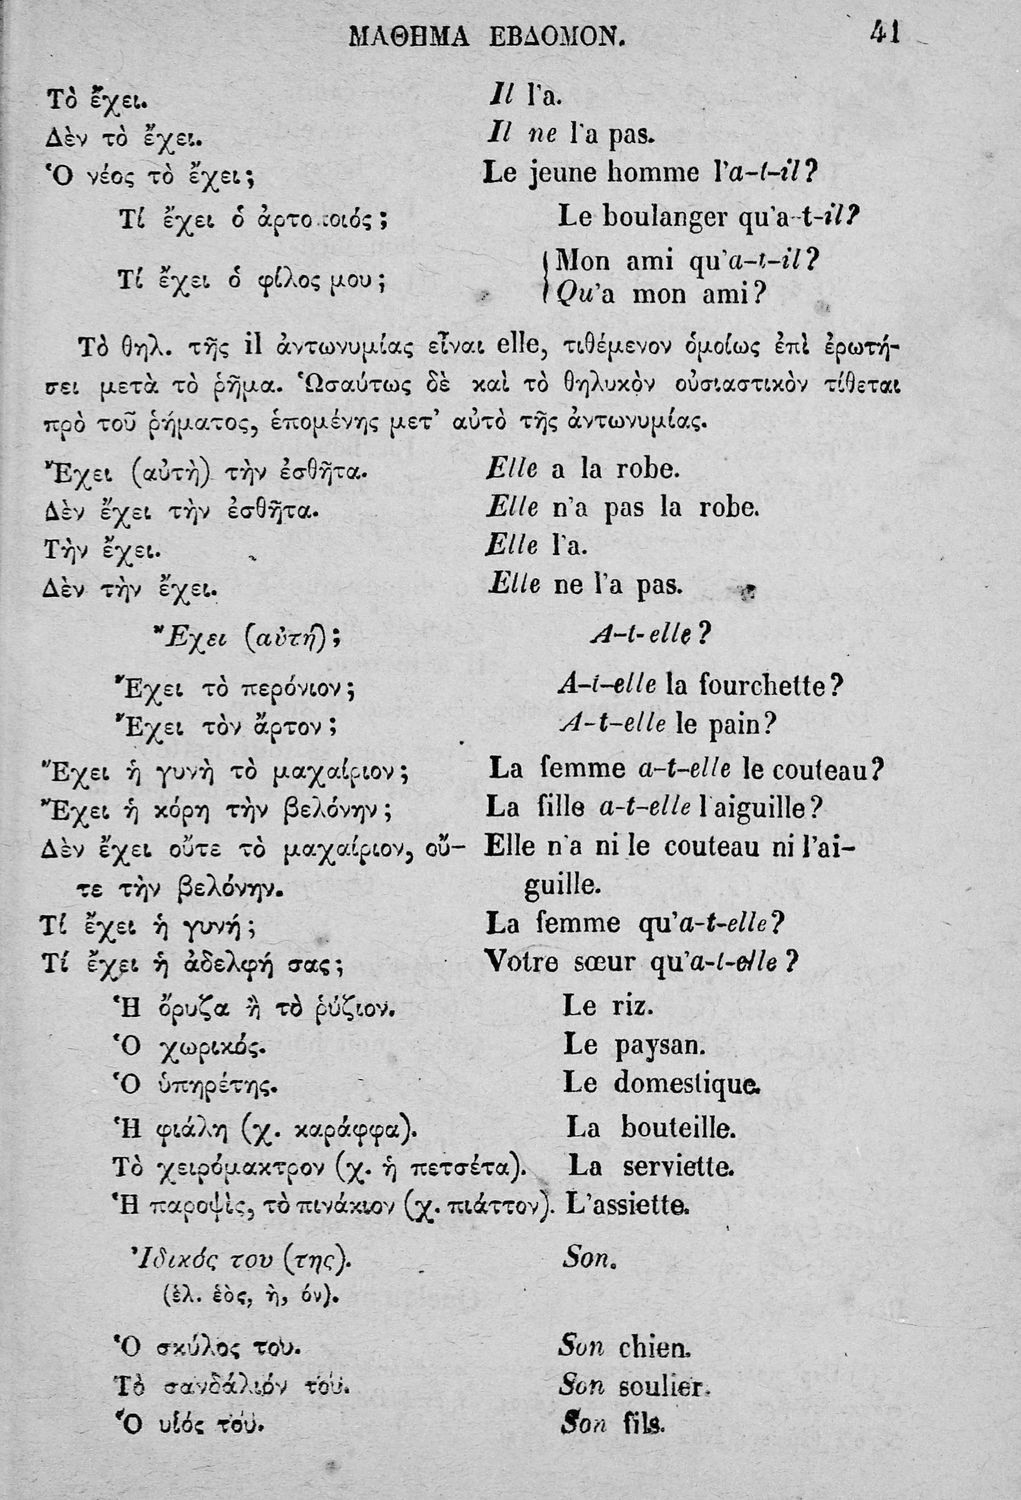 ΜΑΘΗΜΑ ΕΒΔΟΜΟΝ. 41
Τὸ ἔχει. Il l'a.
Δὲν τὸ ἔχει. Il ne l'a pas.
Ὁ νέος τὸ ἔχει; Le jeune homme l'a-t-il?
Τί ἔχει ὁ ἀρτοποιός; Le boulanger qu'a-t-il?
Τί ἔχει ὁ φίλος μου; Mon ami qu'a-t-il?
Qu'a mon ami?
Τὸ θηλ. τῆς il ἀντωνυμίας εἶναι elle, τιθέμενον ὁμοίως ἐπὶ ἐρωτή-
σει μετὰ τὸ ῥῆμα. Ὡσαύτως δὲ καὶ τὸ θηλυκὸν οὐσιαστικὸν τίθεται
πρὸ τοῦ ῥήματος, ἑπομένης μετ' αὐτὸ τῆς ἀντωνυμίας.
Ἔχει (αὐτὴ) τὴν ἐσθῆτα. Elle a la robe.
Δὲν ἔχει τὴν ἐσθῆτα. Elle n'a pas la robe.
Τὴν ἔχει. Elle l'a.
Δὲν τὴν ἔχει. Elle ne l'a pas.
Ἔχει (αὐτή); A-t-elle?
Ἔχει τὸ περόνιον; A-t-elle la fourchette?
Ἔχει τὸν ἄρτον; A-t-elle le pain?
Ἔχει ἡ γυνὴ τὸ μαχαίριον; La femme a-t-elle le couteau?
Ἔχει ἡ κόρη τὴν βελόνην; La fille a-t-elle l'aiguille?
Δὲν ἔχει οὔτε τὸ μαχαίριον, οὔ- Elle n'a ni le couteau ni l'ai-
τε τὴν βελόνην. guille.
Τί ἔχει ἡ γυνή; La femme qu'a-t-elle?
Τί ἔχει ἡ ἀδελφή σας; Votre sœur qu'a-t-elle?
Ἡ ὄρυζα ἢ τὸ ῥύζιον. Le riz.
Ὁ χωρικός. Le paysan.
Ὁ ὑπηρέτης. Le domestique.
Ἡ φιάλη (χ. καράφφα). La bouteille.
Τὸ χειρόμακτρον (χ. ἡ πετσέτα). La serviette.
Ἡ παροψὶς, τὸ πινάκιον (χ. πιάττον). L'assiette.
Ἰδικός του (της). Son.
(ἑλ. ἑὸς, ὴ, όν).
Ὁ σκύλος του. Son chien.
Τὸ σανδάλιόν του. Son soulier.
Ὁ υἱός του. Son fils.